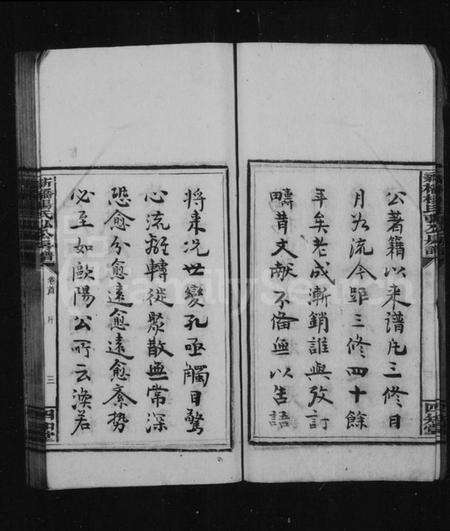 公著籍以来譜凡三修日
月如流今距三修四十餘
年矣老成漸銷誰與攷訂
疇昔文献不俻無以告語
將来况世變孔亟觸目驚
心流離轉徙聚散無常深
恐愈分愈遠愈遠愈紊勢
必至如歐陽公所云渙若
卷首
三